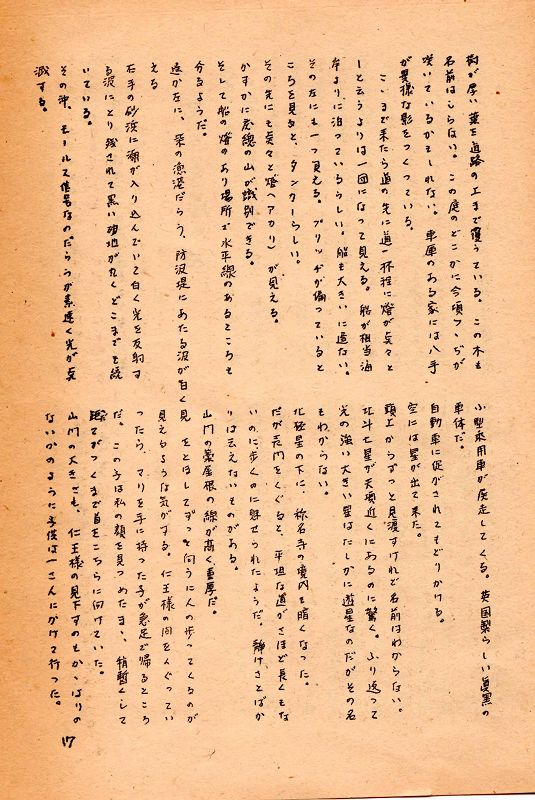 樹が厚い葉を道路の上まで覆うている。この木も
名前はしらない。この庭のどこかに今頃つゝじが
咲いているかもしれない。車庫のある家には八手
が異様な影をつくっている。
こゝまで来たら道の先に道一杯程に燈が点々と
と云うよりは一団になって見える。船が相当沖
よりに泊っているらしい。船も大きいに違ない。
その左にも一つ見える。ブリッヂが偏っていると
ころを見ると、タンカーらしい。
その先にも点々と燈（アカリ）が見える。
かすかに房總の山が識別できる。
そして船の燈のあり場所で水平線のあるところも
分るようだ。
遠か左に、柴の漁港だらう、防波堤にあたる波が白く見
える
右手の砂浜に潮が入り込んでいて白く光を反射す
る波にとり残されて黒い砂地が丸くどこまでも続
いている。
その沖、モールス信号なのだらうか素速く光が点
滅する。
小型乘用車が疾走してくる。英国製らしい真黒の
車体だ。
自動車に促がされてもどりかける。
空には星が出て来た。
頭上からずっと見渡すけれど名前はわからない。
北斗七星が天頂近くにあるのに驚く。ふり返って
光の強い大きい星はたしかに遊星なのだがその名
もわからない。
北極星の下に、称名寺の境内も暗くなった。
だが表門をくぐると、平坦な道がさほど長くもな
いのに歩くのに魅せられたようだ。静けさとばか
りは云えないものがある。
山門の藁屋根の線が高く重厚だ。
をとほしてずっと向うに人の歩ってくるのが
見えるような気がする。仁王様の間をくぐってい
ったら、マリを手に持った子が急足で帰るところ
だ。この子は私の顔を見つめたまゝ、稍暫くして
つくまで首をこちらに向けていた。
山門の大きさも、仁王様の見下すのもかゝはりの
ないかのように子供は一さんにかけて行った。
17